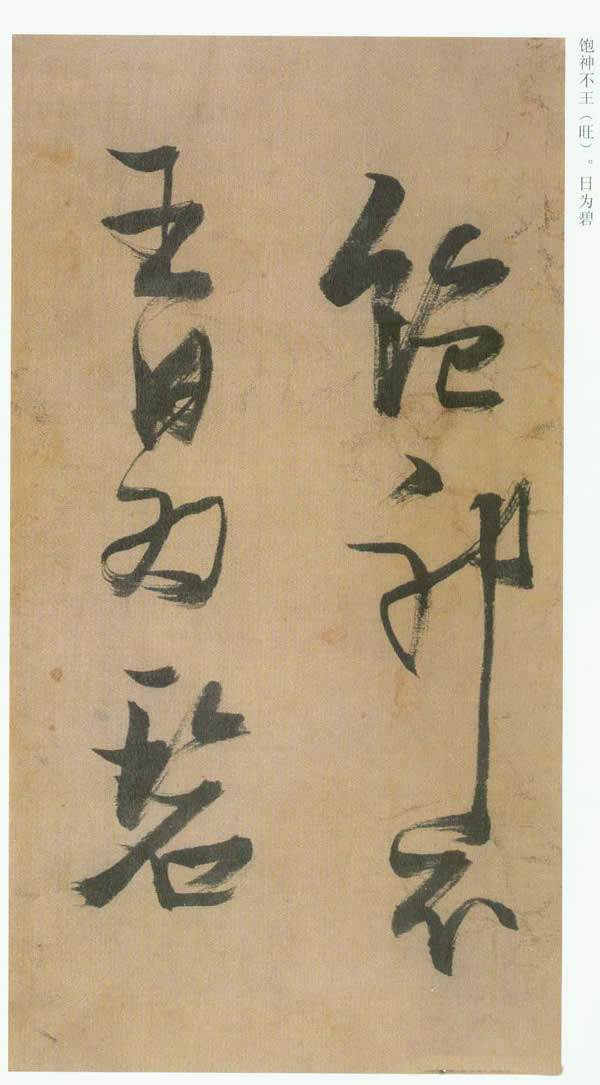 饱神不王（旺）。日为碧
飽神不
王日为碧